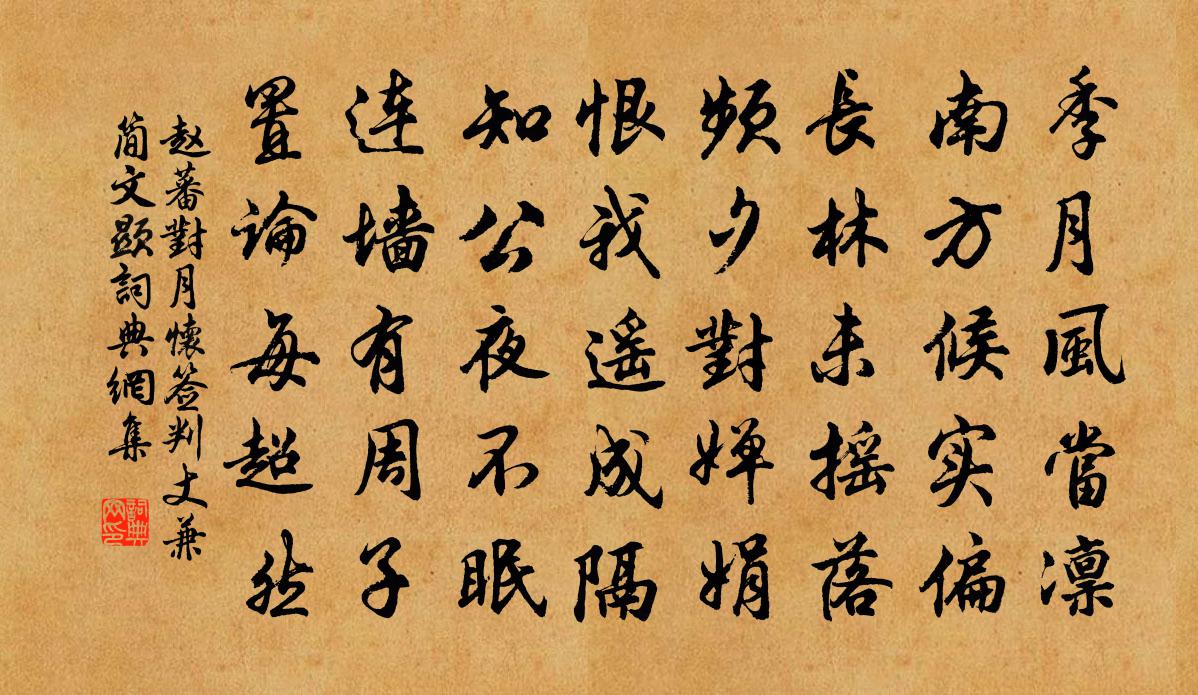 季月風當凛
南方候实偏
長林未摇落
频夕對婵娟
恨我遥成隔
知公夜不眠
连墙有周子
置论每超然
赵蕃對月懷签判丈兼
简文顯詞典網集
詞典
网印